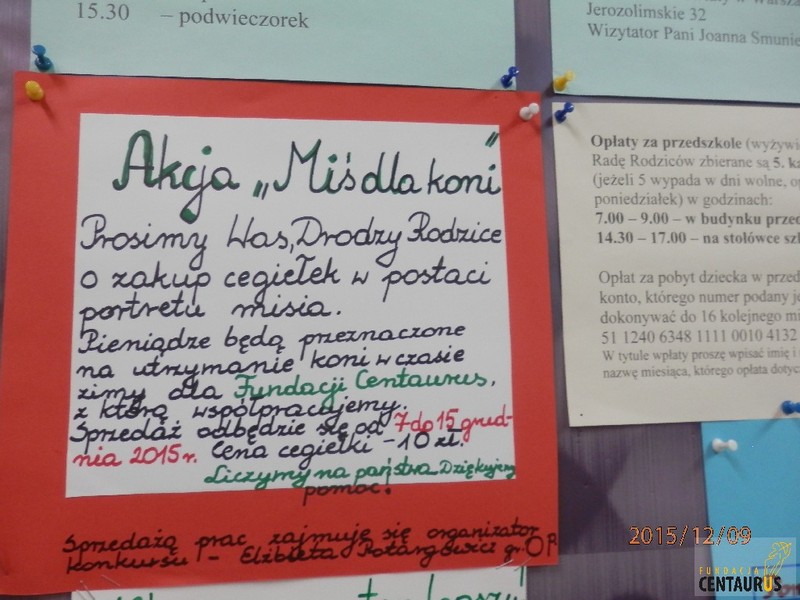 15.30 – podwieczorek
Jerozolimskie 32
Wizytator Pani Joanna
Akcja „Miś dla koni”
Prosimy Was, Drodzy Rodzice
o zakup cegiełek w postaci
portretu misia.
Pieniądze będą przeznaczone
na utrzymanie koni w czasie
zimy dla Fundacji Centaurus,
z którą współpracujemy.
Sprzedaż odbędzie się od 7 do 15 grud-
nia 2015r. Cena cegiełki – 10 zł.
Liczymy na państwa Dziękujemy
pomoc.
Sprzedażą prac zajmuje się organizator
konkursu – Elżbieta gr.
Opłaty za przedszkole (wyżywi
Radę Rodziców zbierane są 5. ka
(jeżeli 5 wypada w dni wolne, op
poniedziałek) w godzinach:
7.00 – 9.00 – w budynku przed
14.30 – 17.00 – na stołówce szk
Opłat za pobyt dziecka w przed
konto, którego numer podany je
dokonywać do 16 kolejnego mi
51 1240 6348 1111 0010 4132
W tytule wpłaty proszę wpisać imię i
nazwę miesiąca, którego opłata dotyc
2015/12/09
FUNDACJA
CENTAURUS